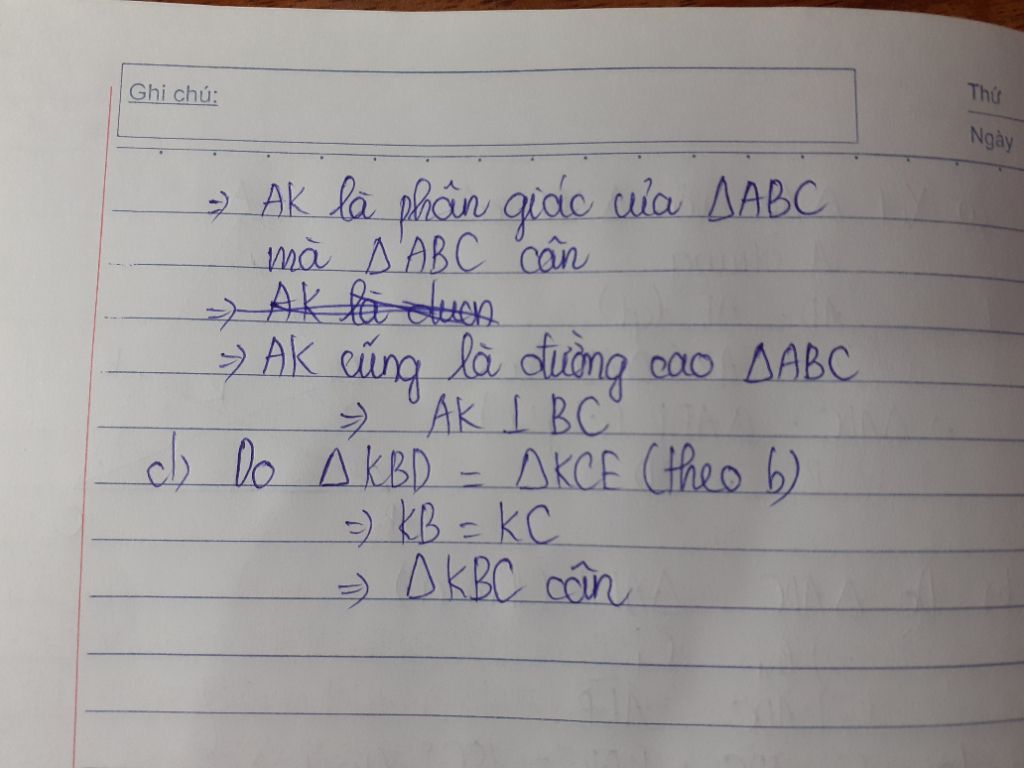 Ghi chú:
Thứ
Ngày
=> AK là phân giác của ΔABC
mà ΔABC cân
=> AK là đuơn
=> AK cũng là đường cao ΔABC
=> AK ⊥ BC
d) Do ΔKBD = ΔKCE (theo b)
=> KB = KC
=> ΔKBC cân